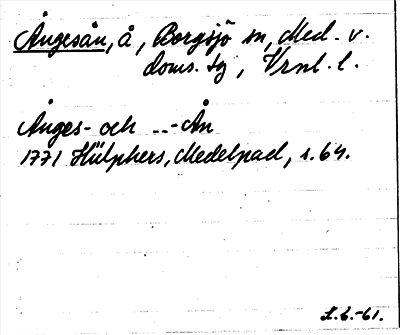 Ångesån, å, Borgsjö sn, Med. v.
doms. tg, Vrnl. l.
Ånges- och ..-Ån
1771 Hülphers, Medelpad, s. 64.
L.L.-61.